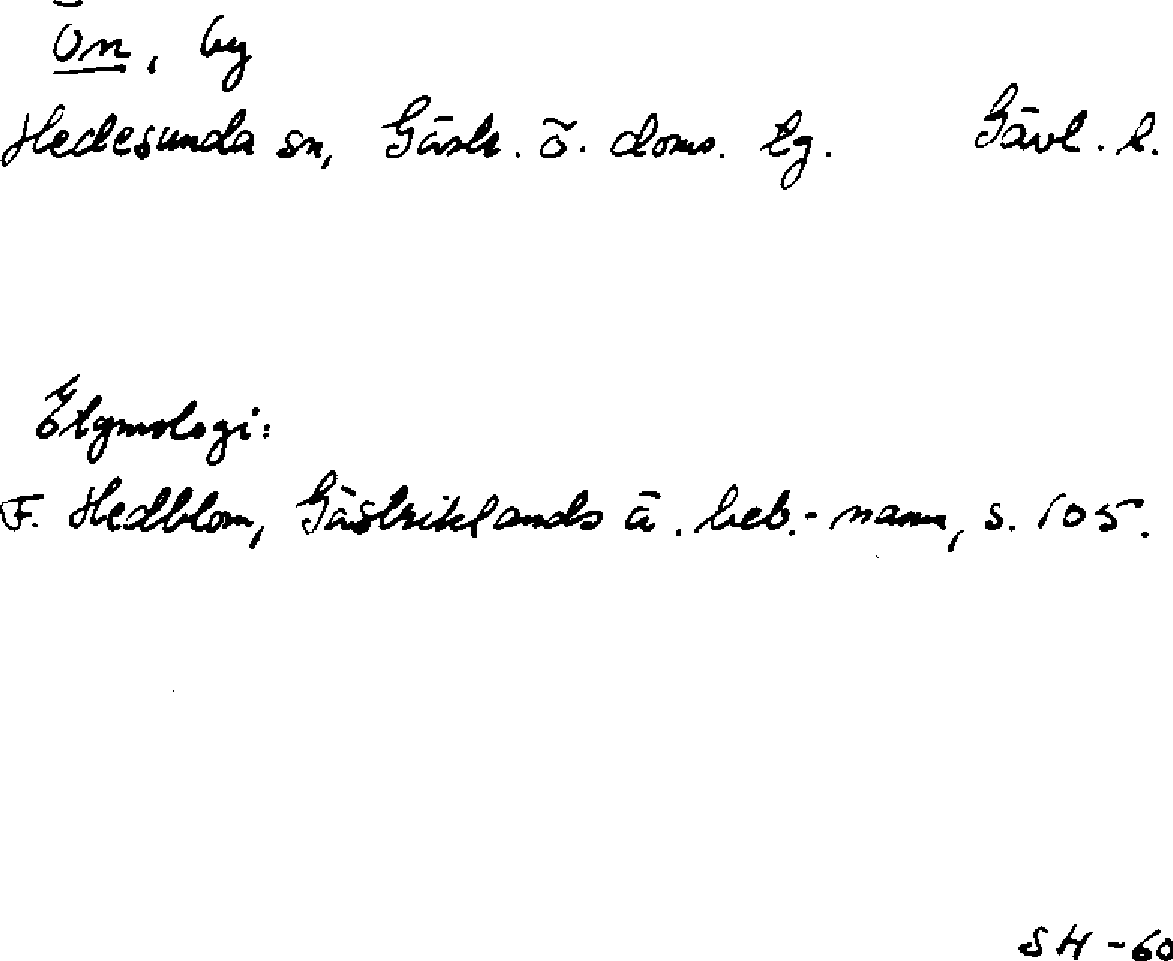 Ön, by
Hedesunda sn, Gästr. ö. doms. tg. Gävl. l.
Etymologi:
F. Hedblom, Gästriklands ä. beb.-namn, s. 105.
SH-60